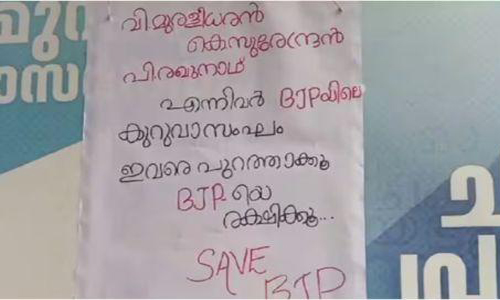 വി മുരളീധരൻ
കെ സുരേന്ദ്രൻ
പി.രഘുനാഥ്
എന്നിവർ BJPയിലെ
കുറുവാസംഘം
ഇവരെ പുറത്താക്കൂ
BJP യെ
രക്ഷിക്കൂ...
SAVE
BJP